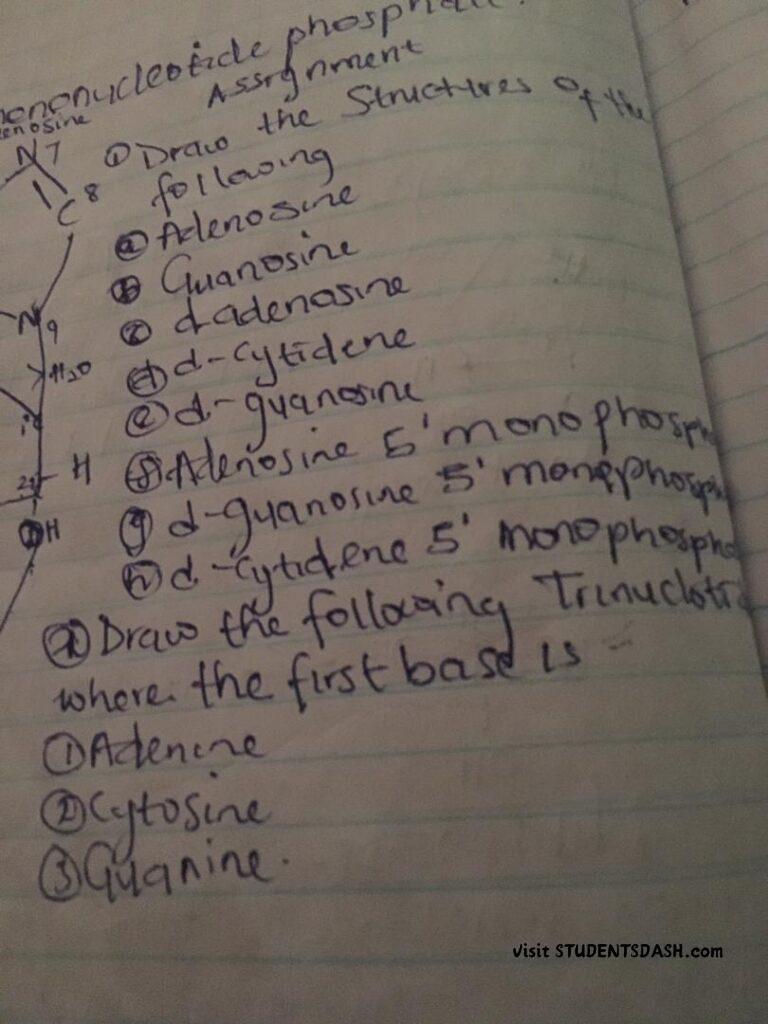 mononucleotide phosphate.
Assignment
enosine
N7
① Draw the Structures of the
C8
following
ⓐ Adenosine
ⓑ Guanosine
ⓒ d-adenosine
N9
H2O
ⓓ d-Cytidene
ⓔ d-guanosine
H
ⓕ Adenosine 5' monophosph
OH
ⓖ d-guanosine 5' monophosph
ⓗ d-Cytidene 5' monophospha
② Draw the following Trinucloti
where the first base is
① Adenine
② Cytosine
③ Guanine.
Visit STUDENTSDASH.com